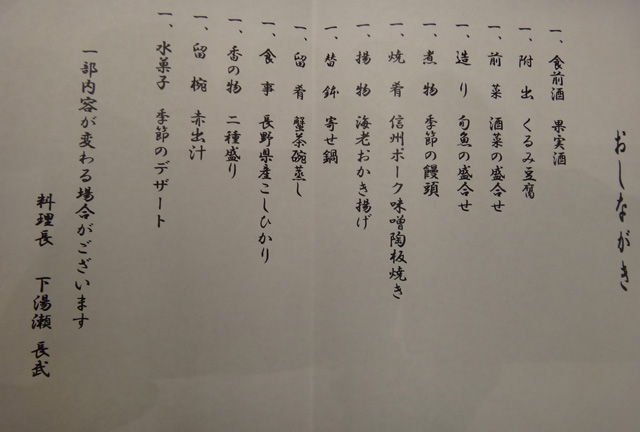 おしながき
一、食前酒　果実酒
一、附　出　くるみ豆腐
一、前　菜　酒菜の盛合せ
一、造　り　旬魚の盛合せ
一、煮　物　季節の饅頭
一、焼　肴　信州ポーク味噌陶板焼き
一、揚　物　海老おかき揚げ
一、替　鉢　寄せ鍋
一、留　肴　蟹茶碗蒸し
一、食　事　長野県産こしひかり
一、香の物　二種盛り
一、留　椀　赤出汁
一、水菓子　季節のデザート
一部内容が変わる場合がございます
料理長　下湯瀬　長武